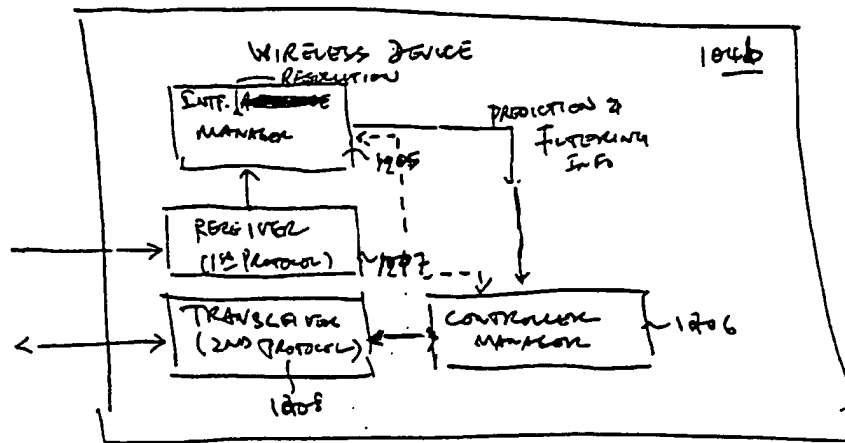 WIRELESS DEVICE
104b
RESOLUTION
INTF.
MANAGER
1205
PREDICTION &
FILTERING
INFO
RECEIVER
(1st PROTOCOL)
1207
TRANSCEIVER
(2ND PROTOCOL)
1208
CONTROLLER
MANAGER
1206